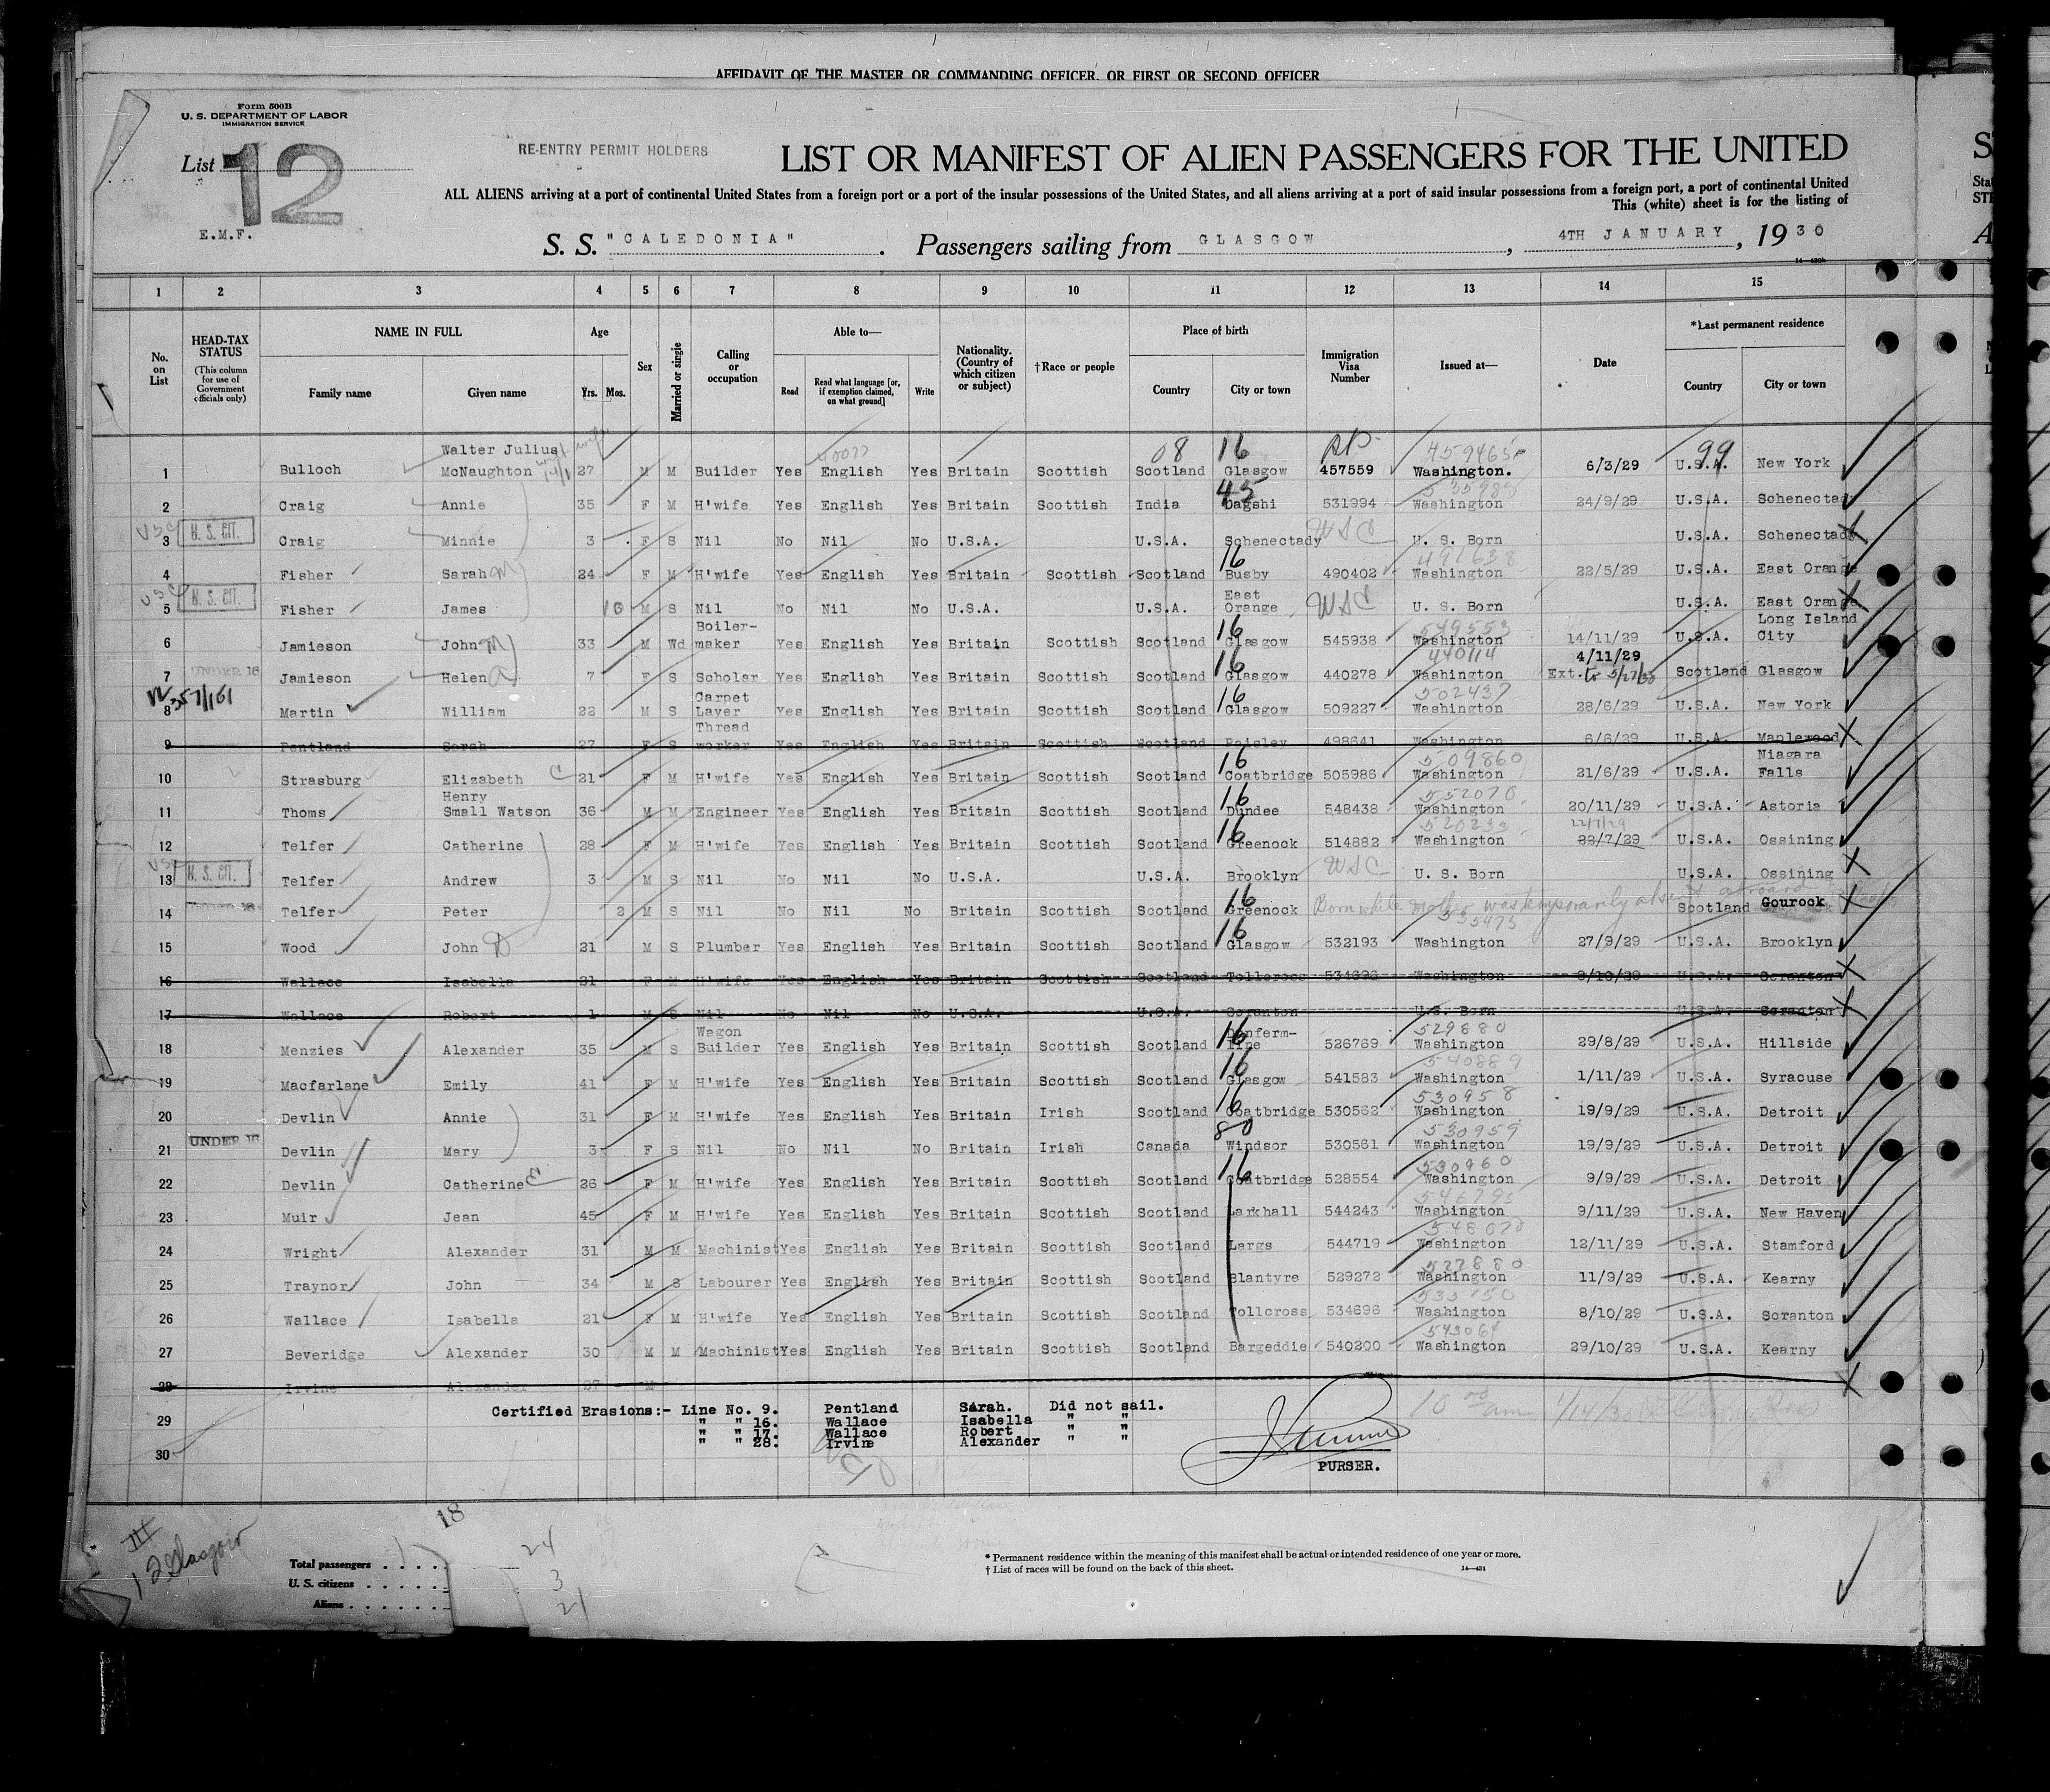 AFFIDAVIT OF THE MASTER OR COMMANDING OFFICER, OR FIRST OR SECOND OFFICER
Form 500B
U. S. DEPARTMENT OF LABOR
IMMIGRATION SERVICE
List 12
RE-ENTRY PERMIT HOLDERS
LIST OR MANIFEST OF ALIEN PASSENGERS FOR THE UNITED
ALL ALIENS arriving at a port of continental United States from a foreign port or a port of the insular possessions of the United States, and all aliens arriving at a port of said insular possessions from a foreign port, a port of continental United
This (white) sheet is for the listing of
E.M.F.
S. S. "CALEDONIA". Passengers sailing from GLASGOW, 4TH JANUARY, 1930
1 2 3 4 5 6 7 8 9 10 11 12 13 14 15
No. on List
HEAD-TAX STATUS
(This column for use of Government officials only)
NAME IN FULL
Family name
Given name
Age
Yrs. Mos.
Sex
Married or single
Calling or occupation
Able to—
Read
Read what language [or, if exemption claimed, on what ground]
Write
Nationality. (Country of which citizen or subject)
†Race or people
Place of birth
Country
City or town
Immigration Visa Number
Issued at—
Date
*Last permanent residence
Country
City or town
1 Bulloch Walter Julius McNaughton 27 M M Builder Yes English Yes Britain Scottish Scotland Glasgow 457559 Washington. 6/3/29 U.S.A. New York
2 Craig Annie 35 F M H'wife Yes English Yes Britain Scottish India Dagshi 531994 Washington 24/9/29 U.S.A. Schenectady
3 U.S. CIT. Craig Minnie 3 F S Nil No Nil No U.S.A. U.S.A. Schenectady USC U. S. Born U.S.A. Schenectady
4 Fisher Sarah M 24 F M H'wife Yes English Yes Britain Scottish Scotland Busby 490402 Washington 22/5/29 U.S.A. East Orange
5 U.S. CIT. Fisher James 10 M S Nil No Nil No U.S.A. U.S.A. East Orange USC U. S. Born U.S.A. East Orange
6 Jamieson John M 33 M Wd Boiler-maker Yes English Yes Britain Scottish Scotland Glasgow 545938 Washington 14/11/29 U.S.A. Long Island City
7 UNDER 16 Jamieson Helen A 7 F S Scholar Yes English Yes Britain Scottish Scotland Glasgow 440278 Washington 4/11/29 Ext. to 5/27/30 Scotland Glasgow
8 Martin William 22 M S Carpet Layer Yes English Yes Britain Scottish Scotland Glasgow 509227 Washington 28/6/29 U.S.A. New York
9 Pentland Sarah 27 F S Thread worker Yes English Yes Britain Scottish Scotland Paisley 498641 Washington 6/6/29 U.S.A. Maplewood
10 Strasburg Elizabeth C 21 F M H'wife Yes English Yes Britain Scottish Scotland Coatbridge 505986 Washington 21/6/29 U.S.A. Niagara Falls
11 Thoms Henry Small Watson 36 M M Engineer Yes English Yes Britain Scottish Scotland Dundee 548438 Washington 20/11/29 U.S.A. Astoria
12 Telfer Catherine 28 F M H'wife Yes English Yes Britain Scottish Scotland Greenock 514882 Washington 22/7/29 U.S.A. Ossining
13 U.S. CIT. Telfer Andrew 3 M S Nil No Nil No U.S.A. U.S.A. Brooklyn USC U. S. Born U.S.A. Ossining
14 Telfer Peter 2 M S Nil No Nil No Britain Scottish Scotland Greenock Born while mother was temporarily absent abroad Scotland Gourock
15 Wood John D 21 M S Plumber Yes English Yes Britain Scottish Scotland Glasgow 532193 Washington 27/9/29 U.S.A. Brooklyn
16 Wallace Isabella 21 F M H'wife Yes English Yes Britain Scottish Scotland Tollcross 534696 Washington 8/10/29 U.S.A. Scranton
17 Wallace Robert 1 M S Nil No Nil No U.S.A. U.S.A. Scranton U.S. Born U.S.A. Scranton
18 Menzies Alexander 35 M S Wagon Builder Yes English Yes Britain Scottish Scotland Dunferm-line 526769 Washington 29/8/29 U.S.A. Hillside
19 Macfarlane Emily 41 F M H'wife Yes English Yes Britain Scottish Scotland Glasgow 541583 Washington 1/11/29 U.S.A. Syracuse
20 Devlin Annie 31 F M H'wife Yes English Yes Britain Irish Scotland Coatbridge 530562 Washington 19/9/29 U.S.A. Detroit
21 UNDER 16 Devlin Mary 3 F S Nil No Nil No Britain Irish Canada Windsor 530561 Washington 19/9/29 U.S.A. Detroit
22 Devlin Catherine E 26 F M H'wife Yes English Yes Britain Scottish Scotland Coatbridge 528554 Washington 9/9/29 U.S.A. Detroit
23 Muir Jean 45 F M H'wife Yes English Yes Britain Scottish Scotland Larkhall 544243 Washington 9/11/29 U.S.A. New Haven
24 Wright Alexander 31 M M Machinist Yes English Yes Britain Scottish Scotland Largs 544719 Washington 12/11/29 U.S.A. Stamford
25 Traynor John 34 M S Labourer Yes English Yes Britain Scottish Scotland Blantyre 529272 Washington 11/9/29 U.S.A. Kearny
26 Wallace Isabella 21 F M H'wife Yes English Yes Britain Scottish Scotland Tollcross 534696 Washington 8/10/29 U.S.A. Scranton
27 Beveridge Alexander 30 M M Machinist Yes English Yes Britain Scottish Scotland Bargeddie 540200 Washington 29/10/29 U.S.A. Kearny
28 Irvine Alexander 37 M
Certified Erasions:- Line No. 9. Pentland Sarah. Did not sail.
29 " " 16. Wallace Isabella " "
" " 17. Wallace Robert " "
" " 28. Irvine Alexander " "
30
PURSER.
18
12 Glasgow
Total passengers 24
U. S. citizens 3
Aliens 21
* Permanent residence within the meaning of this manifest shall be actual or intended residence of one year or more.
† List of races will be found on the back of this sheet.
14—431